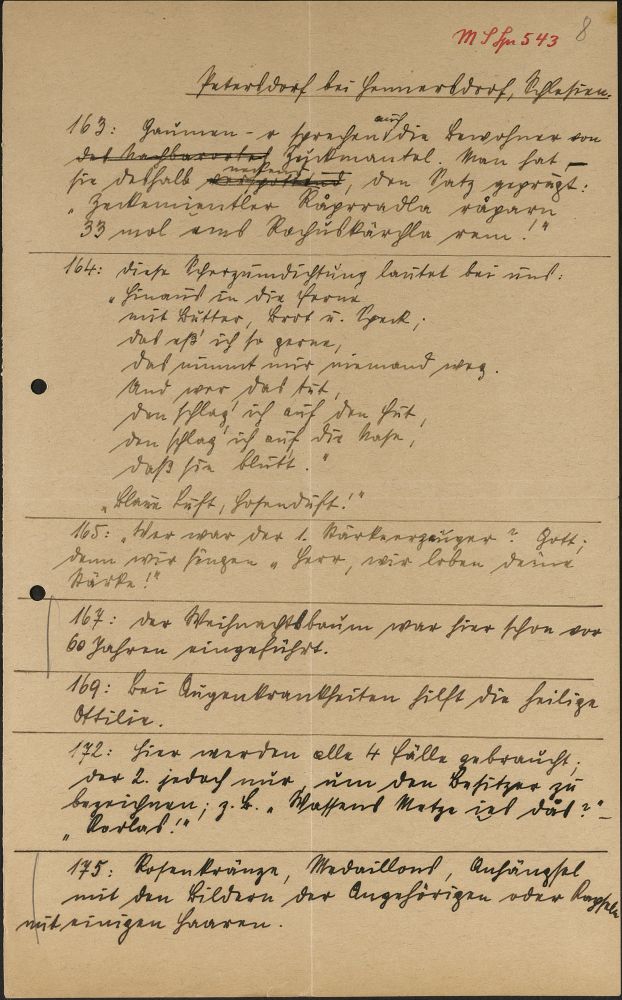 MSSpr 543 8
Petersdorf bei Hennersdorf, Schlesien.
163: Gaumen-r sprechen auch die Bewohner von
des Nachbarortes Zuckmantel. Man hat
sie deshalb neckend, den Satz geprägt:
„Zeckemientler Råprradla råparn
33 mol ums Rochuskärchla rem!"
164: Diese Scherzumdichtung lautet bei uns:
„Hinaus in die Ferne
mit Butter, Brot u. Speck,
das ess' ich so gerne,
das nimmt mir niemand weg.
Und wer das tut,
den schlag' ich auf den Hut,
den schlag' ich auf die Nase,
daß sie blutt."
„Blaue Luft, Hosenduft!"
165: „Wer war der 1. Stärkeerzeuger? Gott;
denn wir singen „Herr, wir loben deine
Stärke!"
167: Der Weihnachtsbaum war hier schon vor
60 Jahren eingeführt.
169: Bei Augenkrankheiten hilft die heilige
Ottilie.
172: Hier werden alle 4 Fälle gebraucht;
der 2. jedoch nur, um den Besitzer zu
bezeichnen; z.B. „Wassens Metze ies dås?" –
„Korlas!"
175: Rosenkränze, Medaillons, Anhängsel
mit den Bildern der Angehörigen oder Kapseln
mit einigen Haaren.